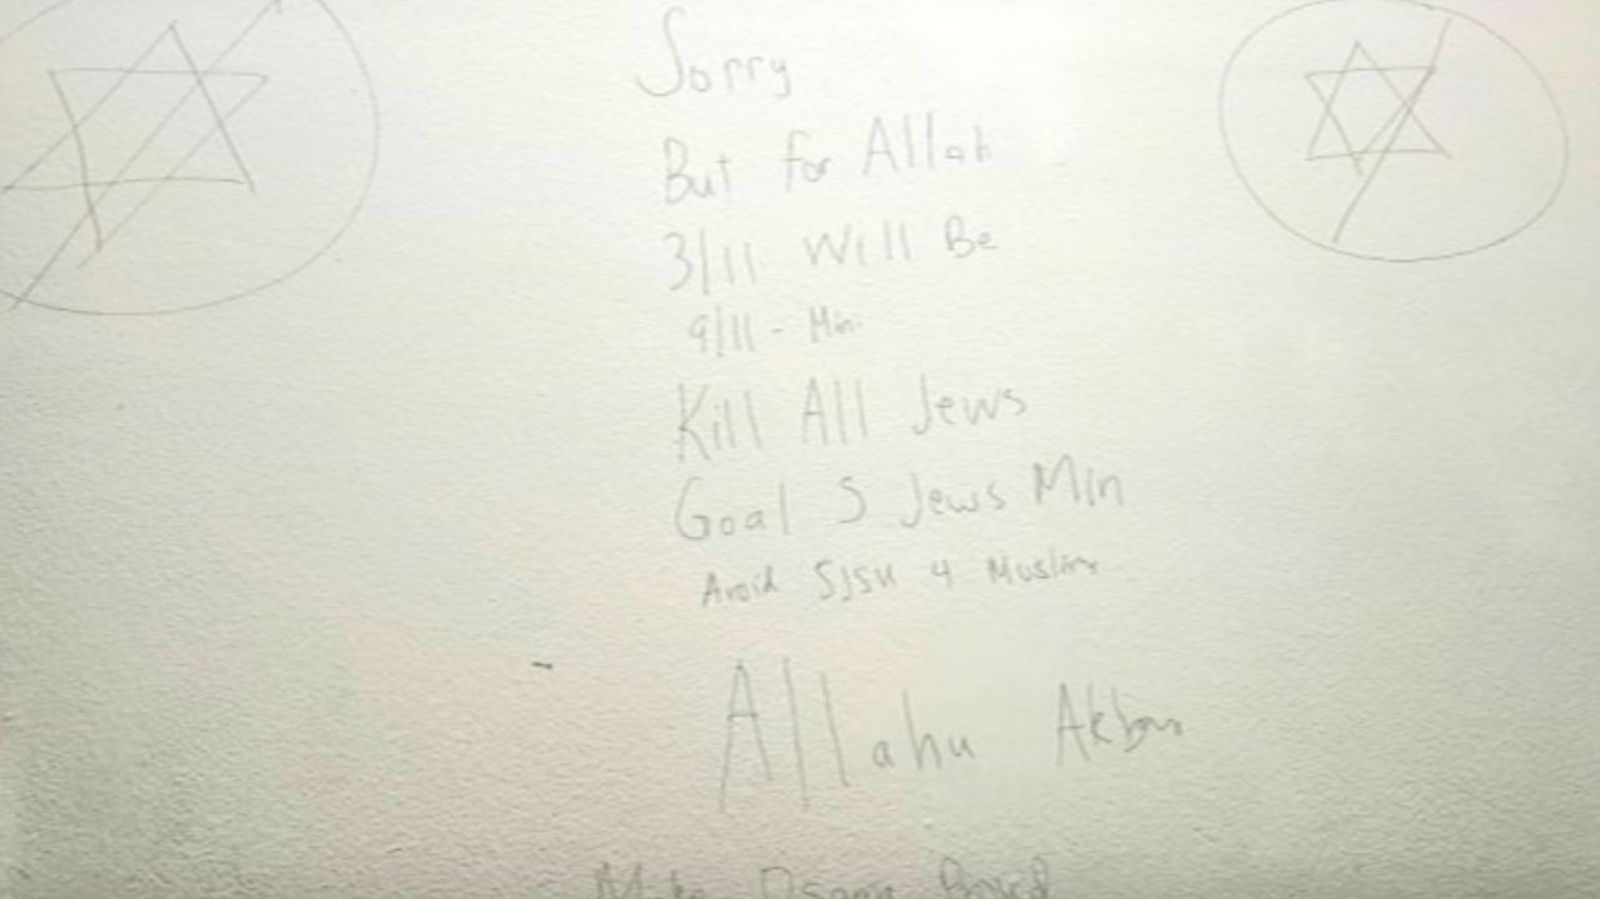 Sorry
But for Allah
3/11 Will Be
9/11 - Min.
Kill All Jews
Goal 5 Jews Min
Avoid SJSU 4 Muslims
Allahu Akbar
Make Osama Proud